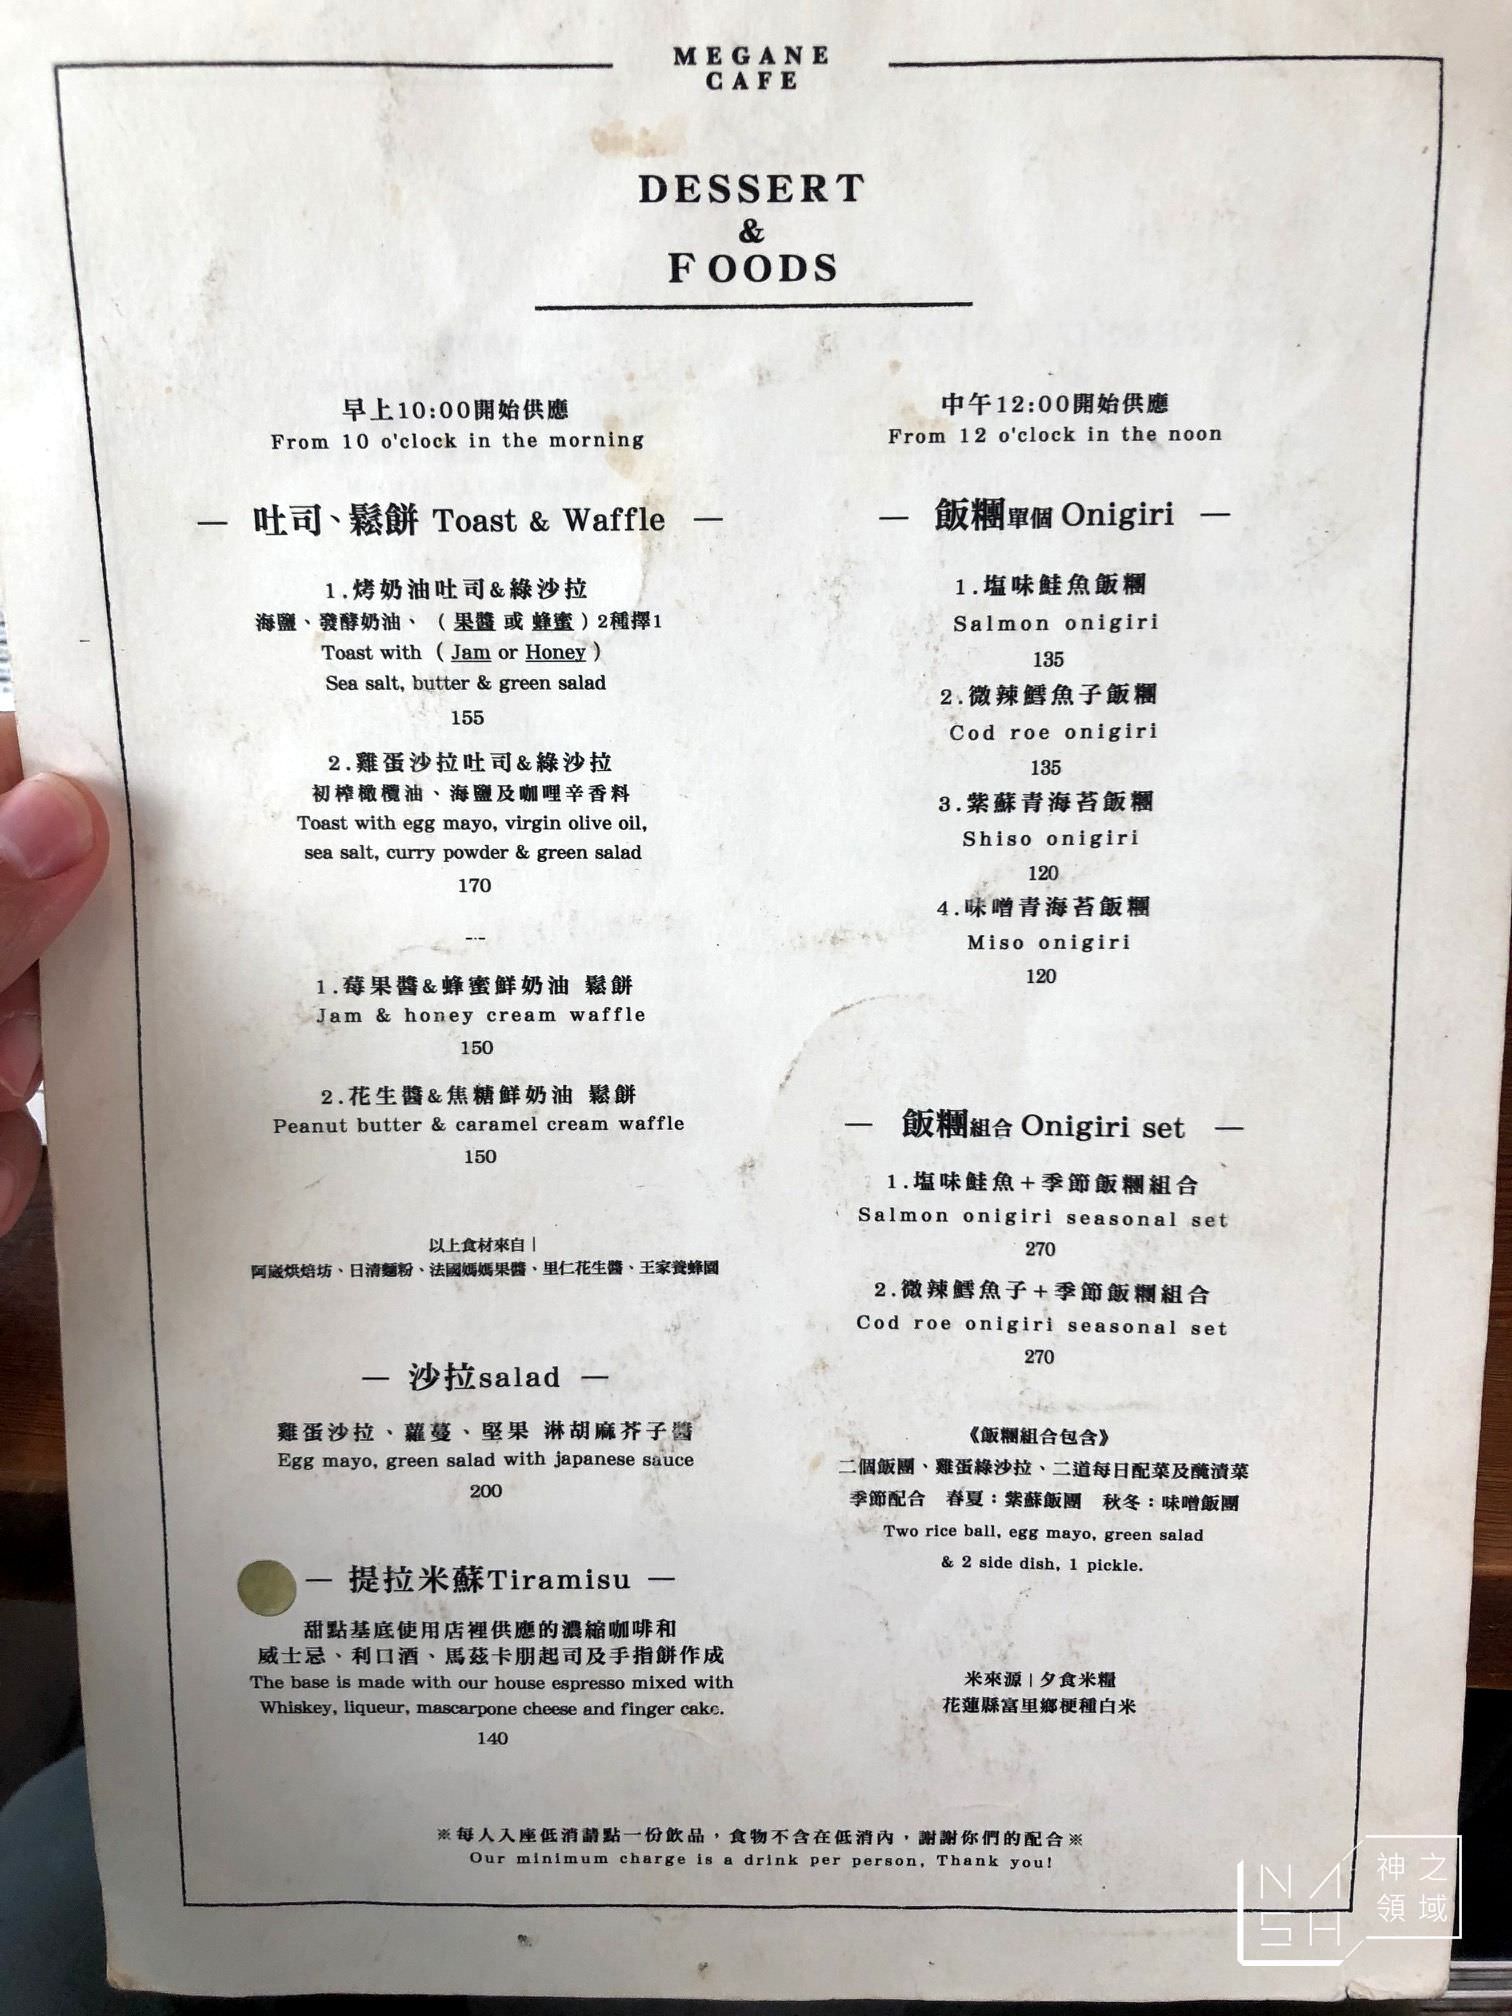 MEGANE
CAFE
DESSERT
&
FOODS
早上10:00開始供應
From 10 o'clock in the morning
— 吐司、鬆餅 Toast & Waffle —
1.烤奶油吐司&綠沙拉
海鹽、發酵奶油、（果醬 或 蜂蜜）2種擇1
Toast with ( Jam or Honey )
Sea salt, butter & green salad
155
2.雞蛋沙拉吐司&綠沙拉
初榨橄欖油、海鹽及咖哩辛香料
Toast with egg mayo, virgin olive oil,
sea salt, curry powder & green salad
170
---
1.莓果醬&蜂蜜鮮奶油 鬆餅
Jam & honey cream waffle
150
2.花生醬&焦糖鮮奶油 鬆餅
Peanut butter & caramel cream waffle
150
以上食材來自|
阿嵗烘焙坊、日清麵粉、法國媽媽果醬、里仁花生醬、王家養蜂園
— 沙拉salad —
雞蛋沙拉、蘿蔓、堅果 淋胡麻芥子醬
Egg mayo, green salad with japanese sauce
200
— 提拉米蘇Tiramisu —
甜點基底使用店裡供應的濃縮咖啡和
威士忌、利口酒、馬茲卡朋起司及手指餅作成
The base is made with our house espresso mixed with
Whiskey, liqueur, mascarpone cheese and finger cake.
140
中午12:00開始供應
From 12 o'clock in the noon
— 飯糰單個 Onigiri —
1.塩味鮭魚飯糰
Salmon onigiri
135
2.微辣鱈魚子飯糰
Cod roe onigiri
135
3.紫蘇青海苔飯糰
Shiso onigiri
120
4.味噌青海苔飯糰
Miso onigiri
120
— 飯糰組合 Onigiri set —
1.塩味鮭魚+季節飯糰組合
Salmon onigiri seasonal set
270
2.微辣鱈魚子+季節飯糰組合
Cod roe onigiri seasonal set
270
《飯糰組合包含》
二個飯團、雞蛋綠沙拉、二道每日配菜及醃漬菜
季節配合 春夏：紫蘇飯團 秋冬：味噌飯團
Two rice ball, egg mayo, green salad
& 2 side dish, 1 pickle.
米來源|夕食米糧
花蓮縣富里鄉梗種白米
※每人入座低消請點一份飲品，食物不含在低消內，謝謝你們的配合※
Our minimum charge is a drink per person, Thank you!
NASH
神之
領域